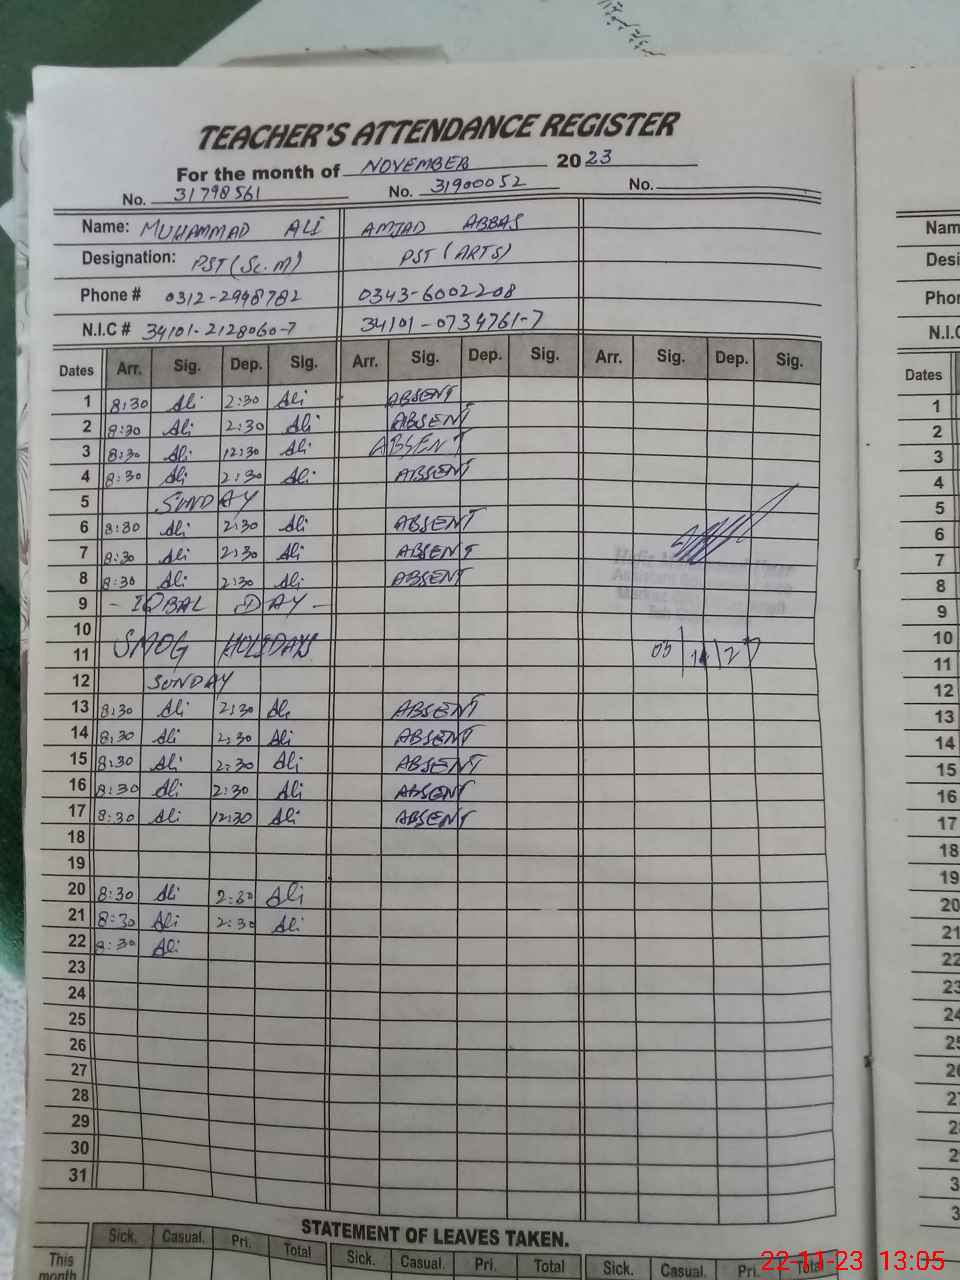 TEACHER'S ATTENDANCE REGISTER
For the month of NOVEMBER 2023
No. 31798561 No. 31900052 No.
Name: MUHAMMAD ALI AMJAD ABBAS
Designation: PST (Sc.M) PST (ARTS)
Phone # 0312-2998782 0343-6002208
N.I.C # 34101-2128060-7 34101-0734761-7
Dates Arr. Sig. Dep. Sig. Arr. Sig. Dep. Sig. Arr. Sig. Dep. Sig.
1 8:30 Ali 2:30 Ali ABSENT
2 8:30 Ali 2:30 Ali ABSENT
3 8:30 Ali 12:30 Ali ABSENT
4 8:30 Ali 2:30 Ali ABSENT
5 SUNDAY
6 8:30 Ali 2:30 Ali ABSENT
7 8:30 Ali 2:30 Ali ABSENT
8 8:30 Ali 2:30 Ali ABSENT
9 - IQBAL DAY -
10
SMOG HOLIDAYS
11
12 SUNDAY
13 8:30 Ali 2:30 Ali ABSENT
14 8:30 Ali 2:30 Ali ABSENT
15 8:30 Ali 2:30 Ali ABSENT
16 8:30 Ali 2:30 Ali ABSENT
17 8:30 Ali 12:30 Ali ABSENT
18
19
20 8:30 Ali 2:30 Ali
21 8:30 Ali 2:30 Ali
22 8:30 Ali
23
24
25
26
27
28
29
30
31
STATEMENT OF LEAVES TAKEN.
Sick. Casual. Pri. Total Sick. Casual. Pri. Total Sick. Casual. Pri. Total
This
month
Nam
Desi
Phor
N.I.C
Dates
1
2
3
4
5
6
7
8
9
10
11
12
13
14
15
16
17
18
19
20
21
22
23
24
22-11-23 13:05